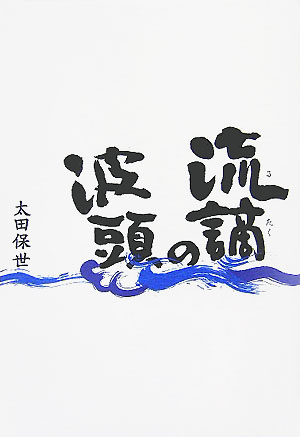 流謫の
るたく
波頭
太田保世